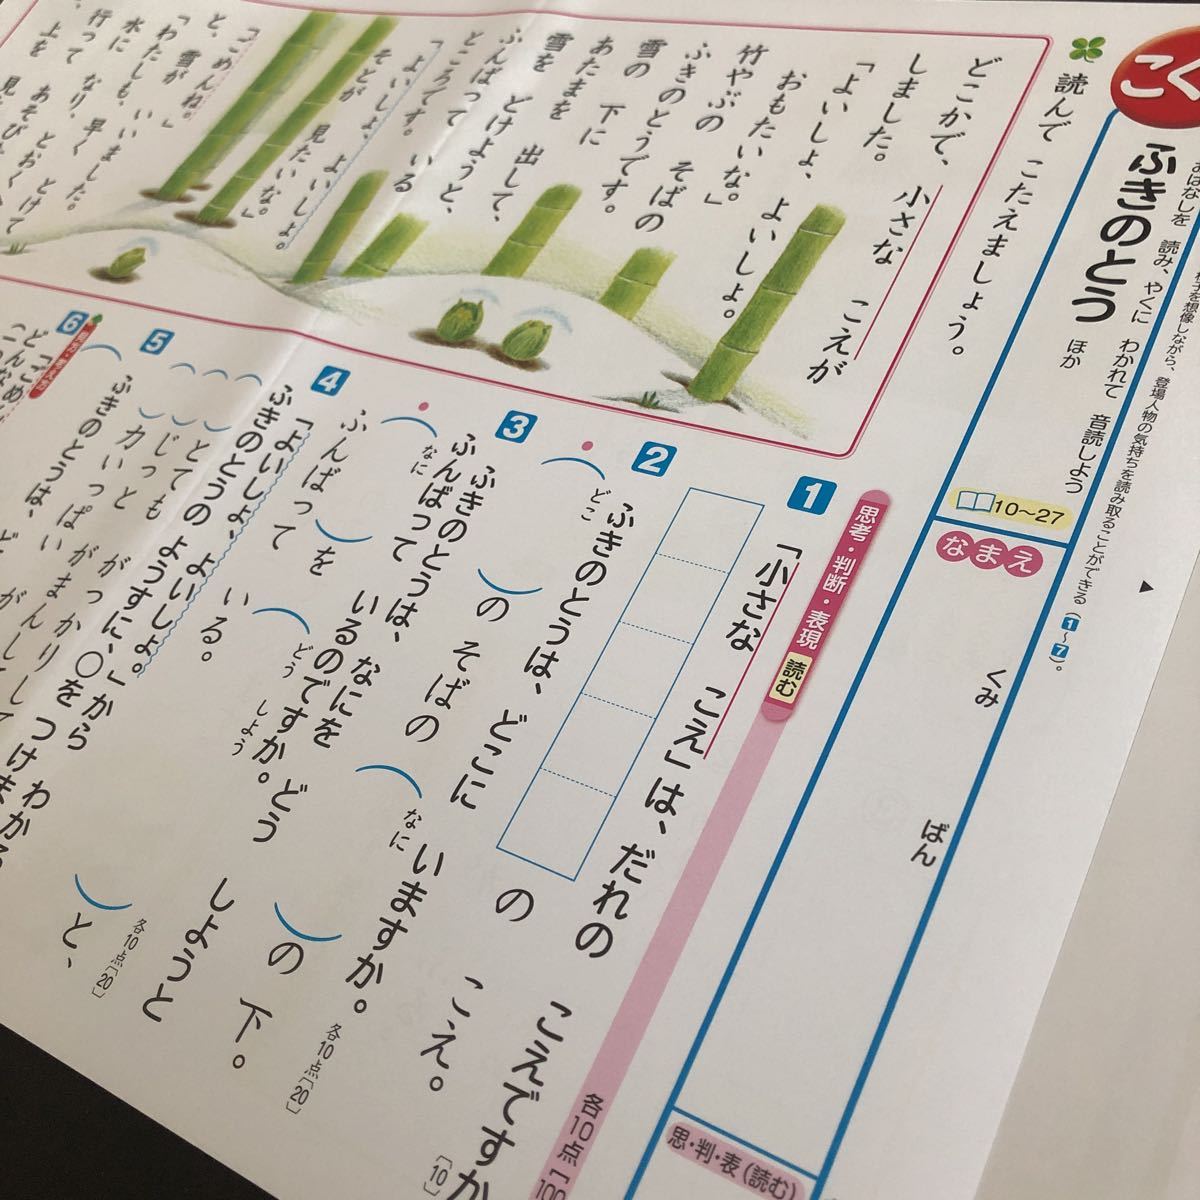 こく
ふきのとう
ほか
おはなしを 読み、やくに わかれて 音読しよう
様子を想像しながら、登場人物の気持ちを読み取ることができる(1~7)。
10～27
なまえ
くみ
ばん
読んで こたえましょう。
どこかで、小さな こえが
しました。
「よいしょ、よいしょ。
おもたいな。」
竹やぶの そばの
ふきのとうです。
雪の 下に
あたまを 出して、
雪を どけようと、
ふんばって いる
ところです。
「よいしょ、よいしょ。
そとが 見たいな。」
「ごめんね。」
と、雪が いいました。
「わたしも、早く とけて
水に なり、とおくへ
行って あそびた
上を 見
思考・判断・表現
読む
各10点
思・判・表(読む)
1
「小さな こえ」は、だれの こえですか
[10]
の こえ。
2
ふきのとうは、どこに いますか。
各10点[20]
どこ
の そばの
なに
の 下。
3
ふきのとうは、なにを どう しようと
ふんばって いるのですか。
各10点[20]
なに
を
どう しよう
と、
ふんばって いる。
4
「よいしょ、よいしょ。」から わかる
ふきのとうの ようすに、○を つけま
とても がっかりして
じっと がまんして
力いっぱい が
5
ふきのとうは、ど
6
「ごめ
どんな